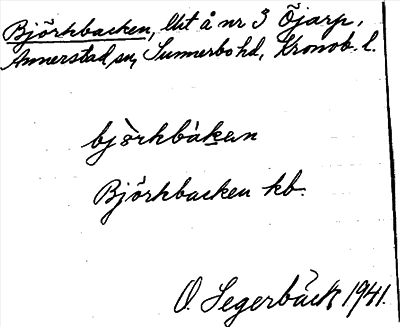 Björkbacken, lht å nr 3 Öjarp,
Annerstad sn, Sunnerbo hd, Kronob. l.
bjö̀rkbàken
Björkbacken kb.
O. Segerbäck 1941.